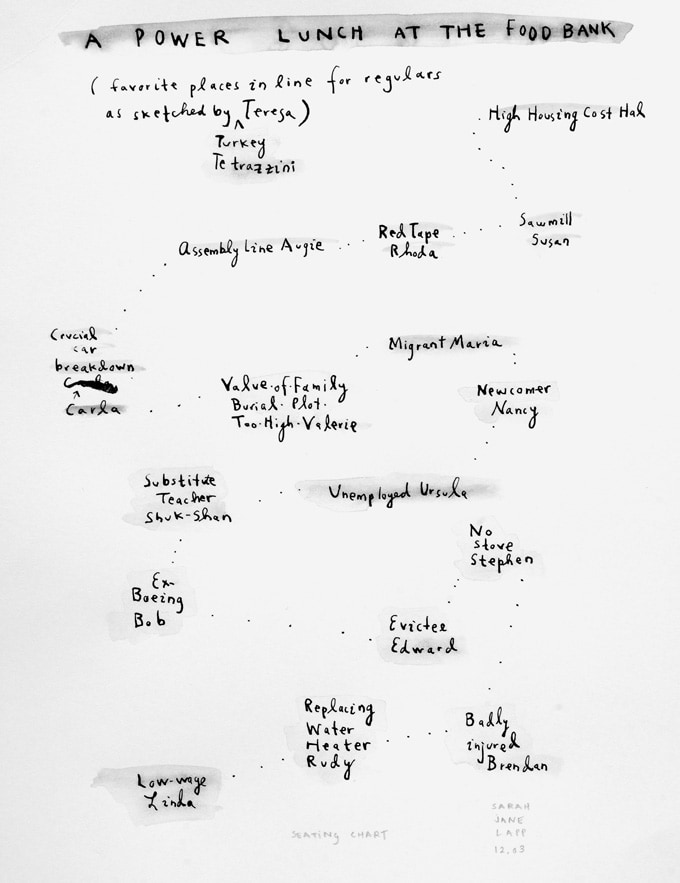 A POWER LUNCH AT THE FOOD BANK
(favorite places in line for regulars
as sketched by ^ Teresa)
Turkey
Tetrazzini
High Housing Cost Hal
Sawmill
Susan
Red Tape
Rhoda
Assembly Line Augie
Crucial
car
breakdown
Carla
Value-of-Family
Burial-Plot-
Too-High-Valerie
Migrant Maria
Newcomer
Nancy
Unemployed Ursula
Substitute
Teacher
Shuk-Shan
Ex-
Boeing
Bob
Evictee
Edward
No
Stove
Stephen
Badly
injured
Brendan
Replacing
Water
Heater
Rudy
Low-wage
Linda
SEATING CHART
SARAH
JANE
LAPP
12.03